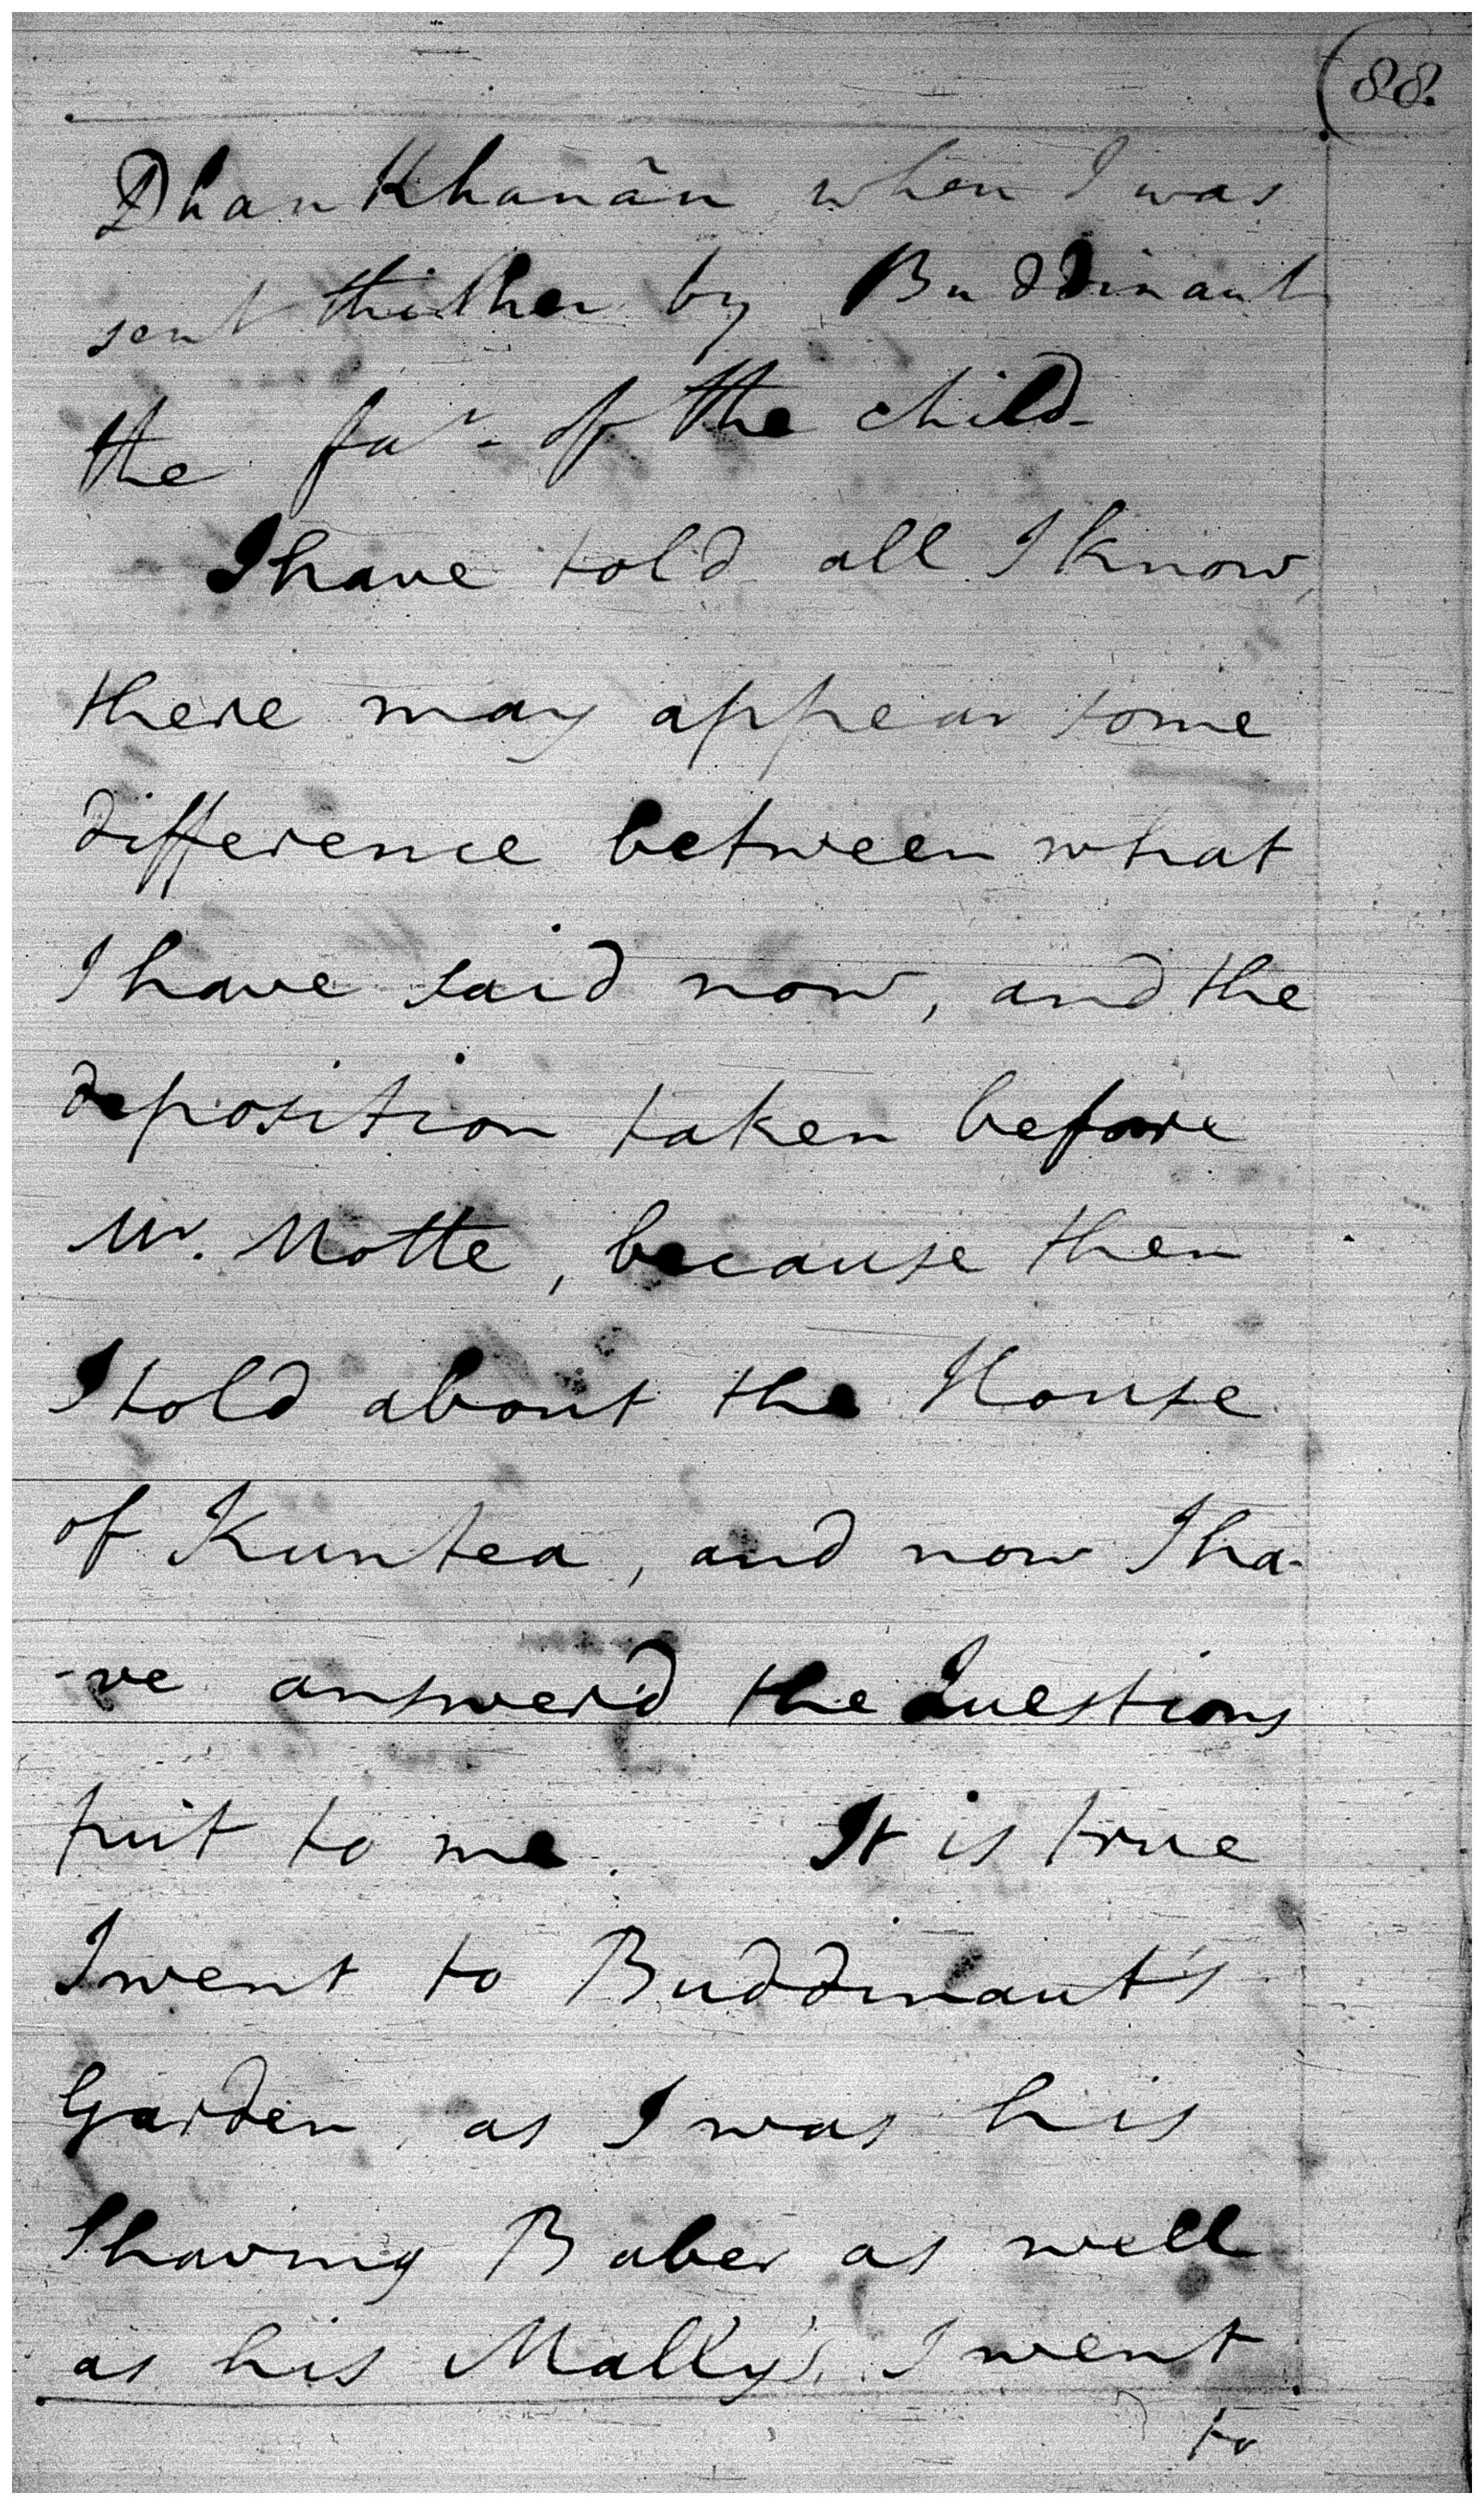 (88.
Dhan Khanãn when I was
sent thither by Buddinaut
the far. of the child-
I have told all I know,
there may appear some
difference between what
I have said now, and the
deposition taken before
Mr. Motte, because then
I told about the House
of Kuntea, and now I ha-
-ve answerd the Questions
put to me. It is true
I went to Buddinaut's
Garden, as I was his
Shaving Baber as well
as his Mally's, I went
to